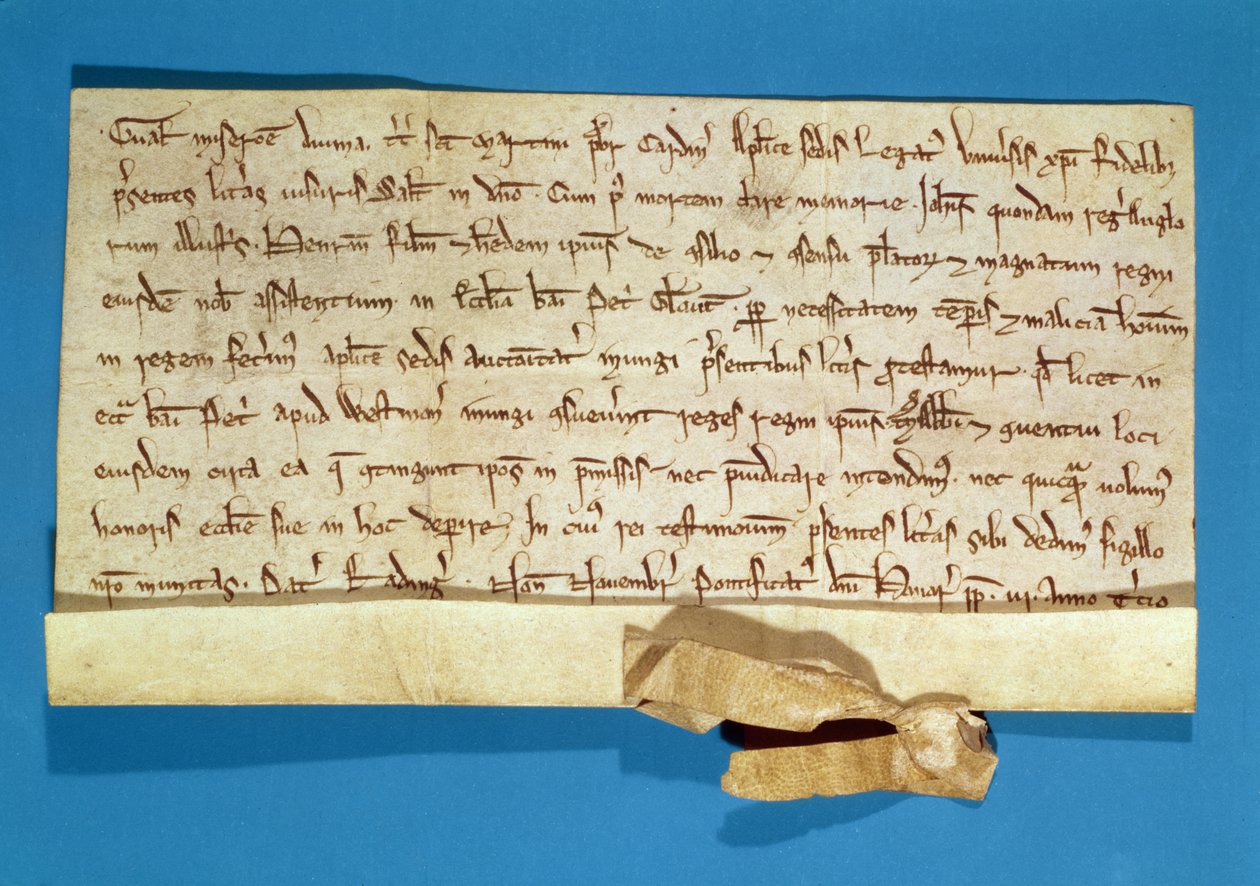 Gual miseroe divina. tt sct Martini prbr Cardin Aplice sedis Legat Univsis xpi fidelib
psentes litas visuris Salt in dno. Cum p mortem clare memorie. Johis quondam reg Anglo
rum illustis. Henrm filiu & hedem ipius de gsilio & gsensu plator & magnatum regni
eiusde nob assistentium. in Ecclia bati Pet Glouc. pp necessitatem teporis & malicia hoium
in regem fecim aplice sedis auctoitat inungi psentibus lris protestamur. qd licet in
ecca bati Pet apud Westmon inungi gsuevint reges regni ipius. Abbi & gventui loci
eiusdem circa ea q gtingunt ipos in pmissis nec piudicare intendim. nec quicq volum
honoris ecclie sue in hoc deperire. In cui rei testimonium psentes litas sibi dedim sigillo
nro munitas. Dat Rading. Non Novembr. Pontificat dni Honor pp. iii. Anno Tcio